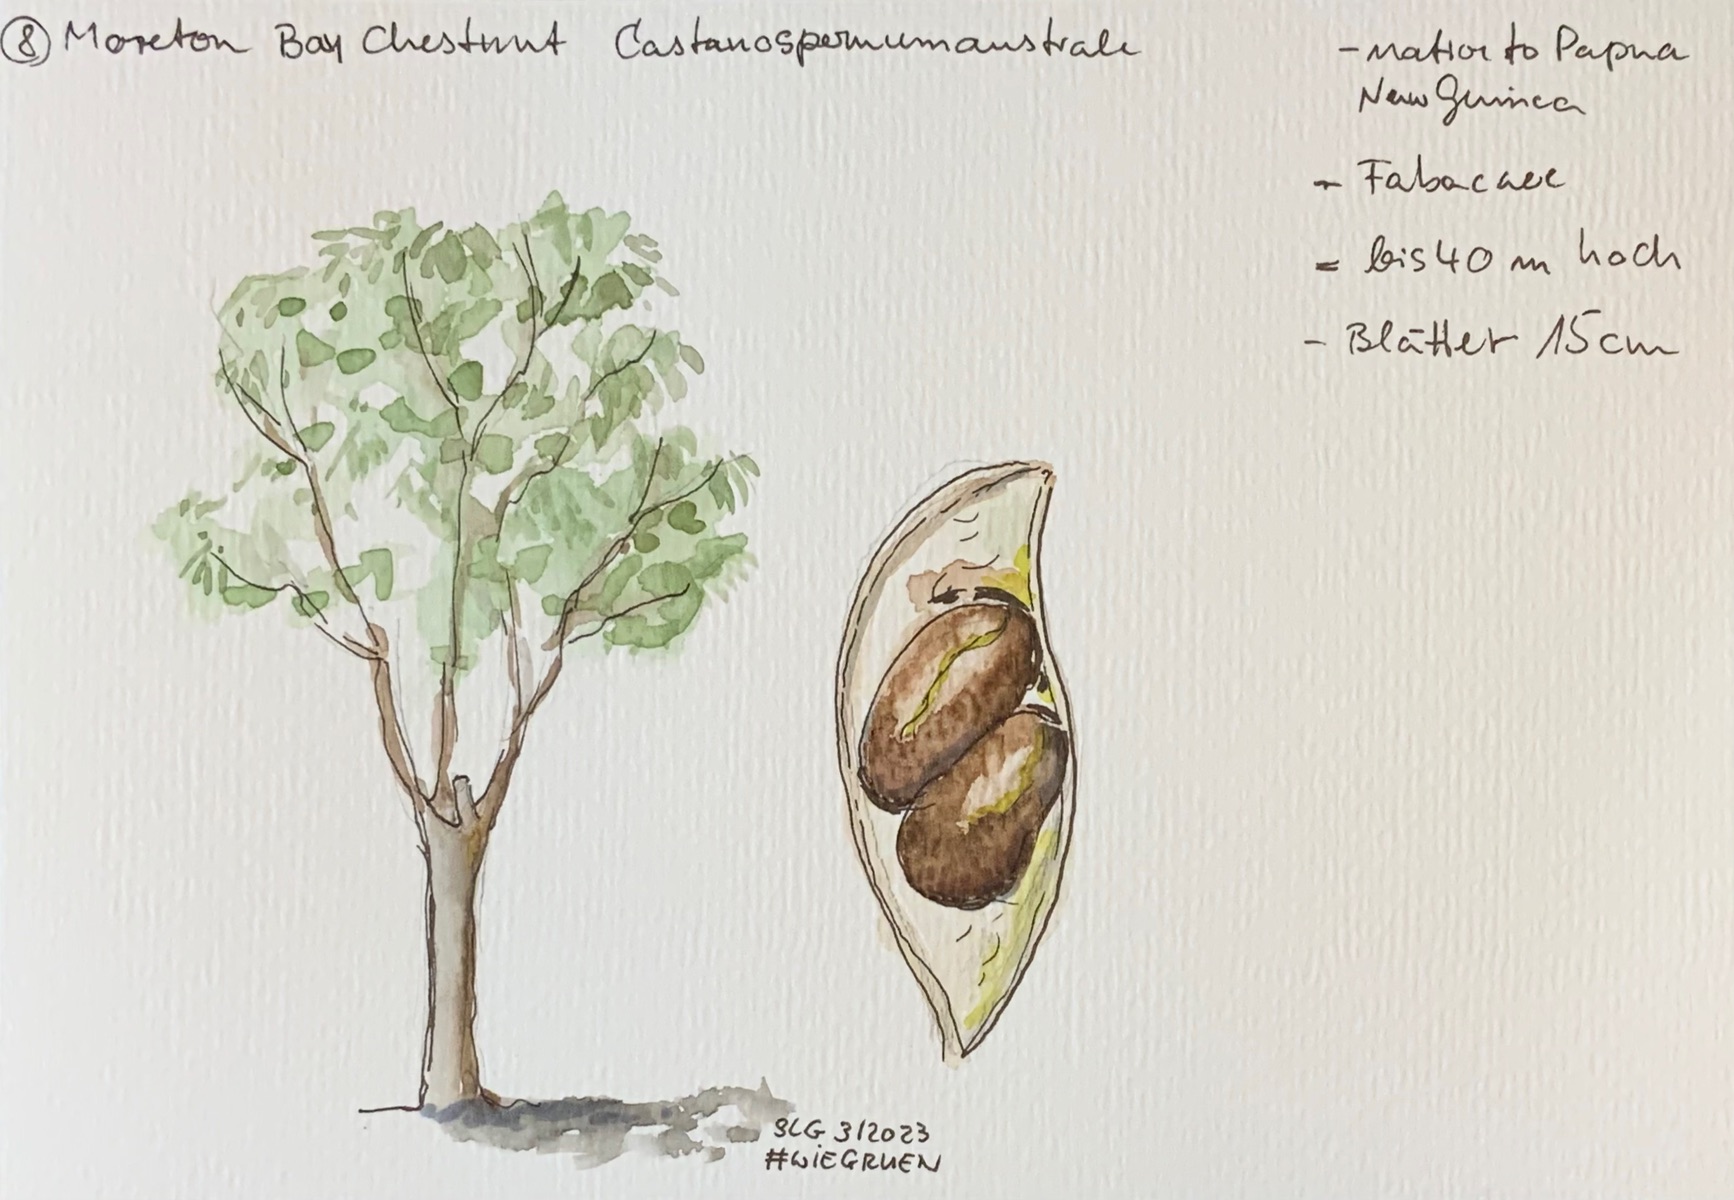 8 Moreton Bay Chestnut Castanospermum australe
- native to Papua
New Guinea
- Fabaceae
- bis 40 m hoch
- Blätter 15 cm
SLG 3/2023
#WIEGRUEN